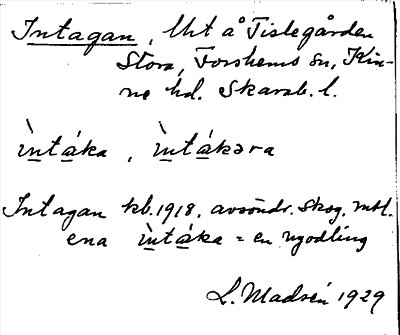 Intagan, Uht å Tislegården
Stora, Forshems sn, Kin-
ne hd. Skarab. l.
ìntáka, ìntákəra
Intagan kb. 1918, avsöndr. Skog,
ena ìntáka = en nyodling
L. Madsén 1929